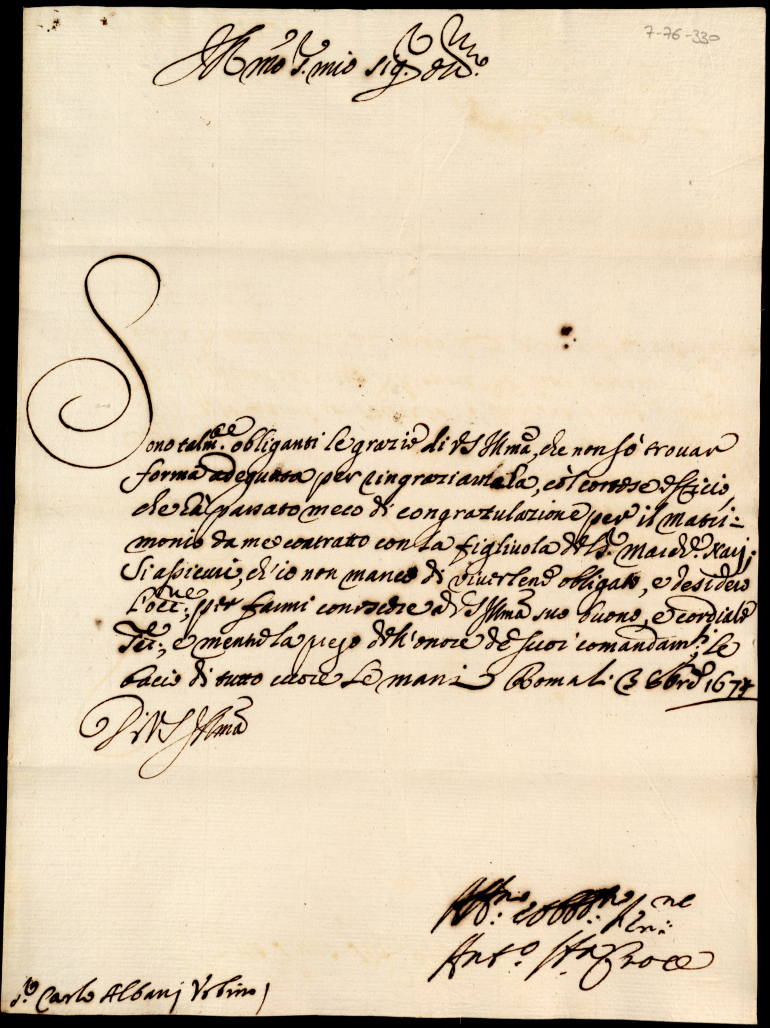 7-76-330
Ill.mo S.r mio sig.r Oss.mo
Sono talm.te obliganti le grazie di VS Ill.ma, che non sò trovar
forma adequata per ringraziarla, còl cortese officio,
che hà passato meco di congratulazione per il matri=
monio da me contratto con la figliuola del S.r March.e Narj.
Si assicuri, ch'io non manco di viverlene obligato, e desidero
l'occ.ne per farmi conoscere a VS Ill.ma suo buono, e cordiale
Ser.re, e mentre la prego dell'onore de suoi comandam.ti, le
bacio di tutto cuore le mani Roma li 3 8bre 1674
Di VS Ill.ma
Aff.mo et obblig.mo Ser.ne
Ant.o S.ta Croce
S.r Carlo Albanj Urbino